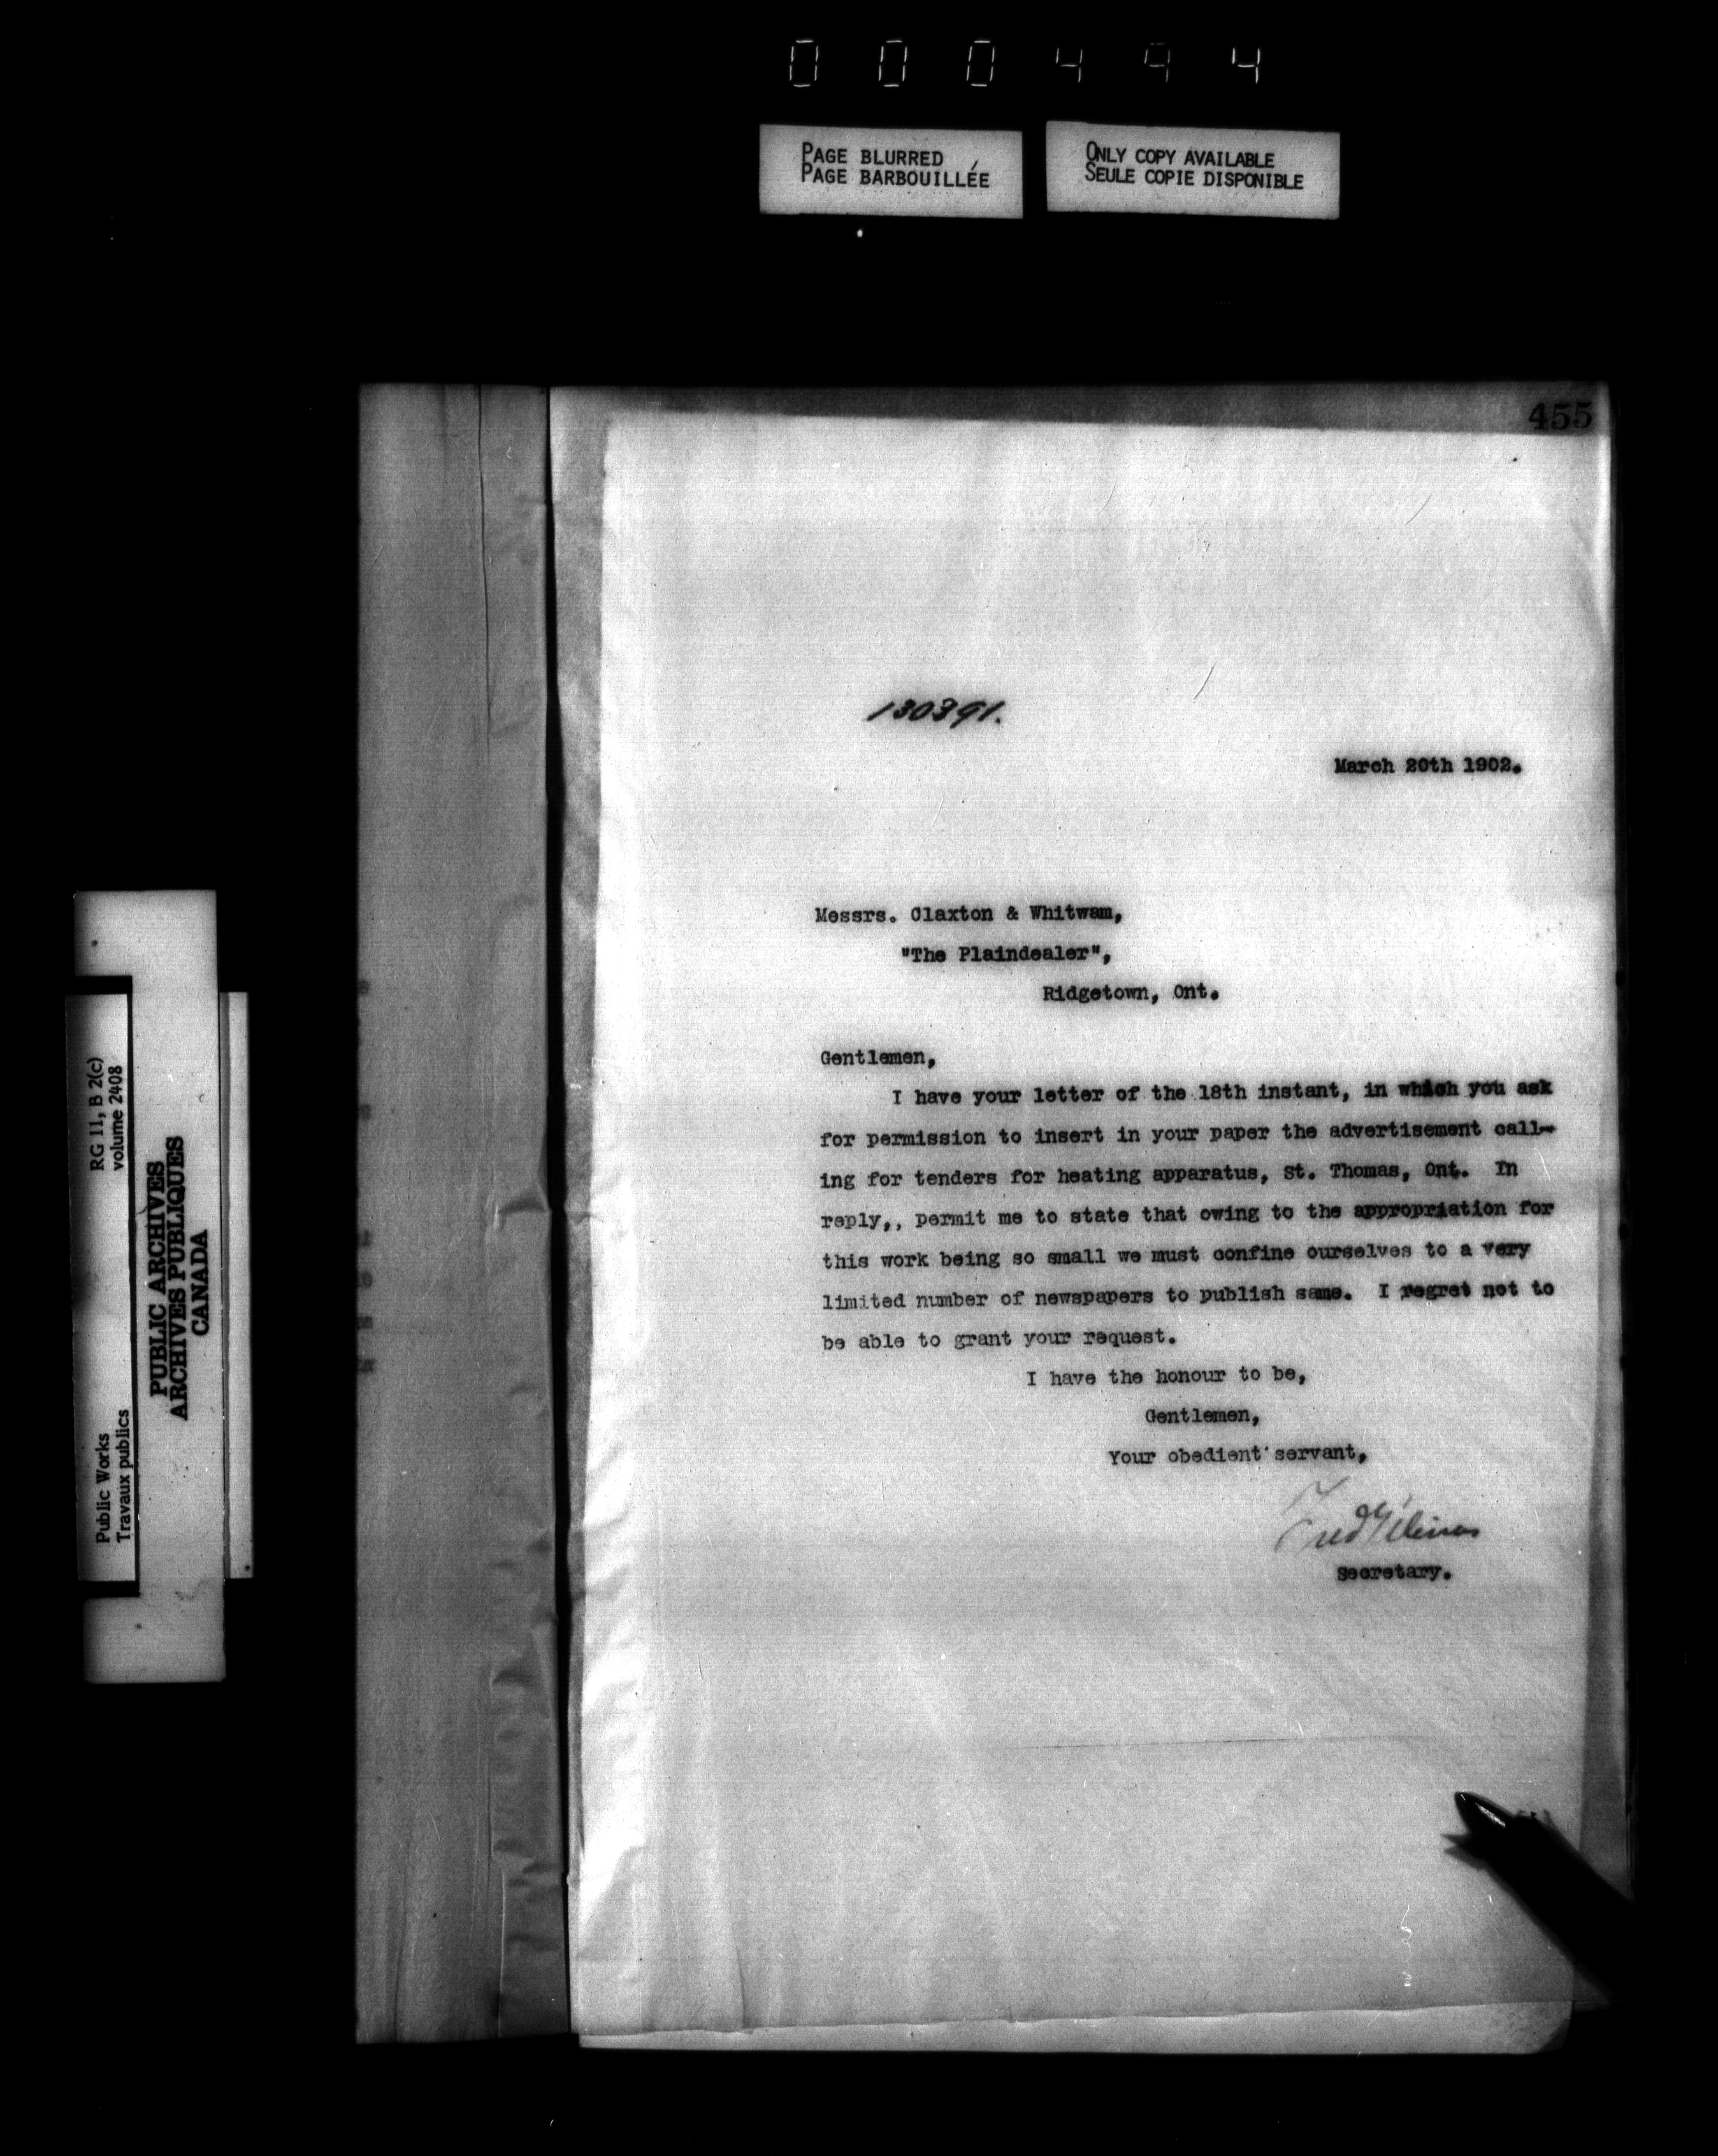 000494
PAGE BLURRED
PAGE BARBOUILLÉE
ONLY COPY AVAILABLE
SEULE COPIE DISPONIBLE
455
130391.
March 20th 1902.
Messrs. Claxton & Whitwam,
"The Plaindealer",
Ridgetown, Ont.
Gentlemen,
I have your letter of the 18th instant, in which you ask
for permission to insert in your paper the advertisement call-
ing for tenders for heating apparatus, St. Thomas, Ont. In
reply,, permit me to state that owing to the appropriation for
this work being so small we must confine ourselves to a very
limited number of newspapers to publish same. I regret not to
be able to grant your request.
I have the honour to be,
Gentlemen,
Your obedient servant,
Fred Gélinas
Secretary.
RG 11, B 2(c)
volume 2408
Public Works
Travaux publics
PUBLIC ARCHIVES
ARCHIVES PUBLIQUES
CANADA